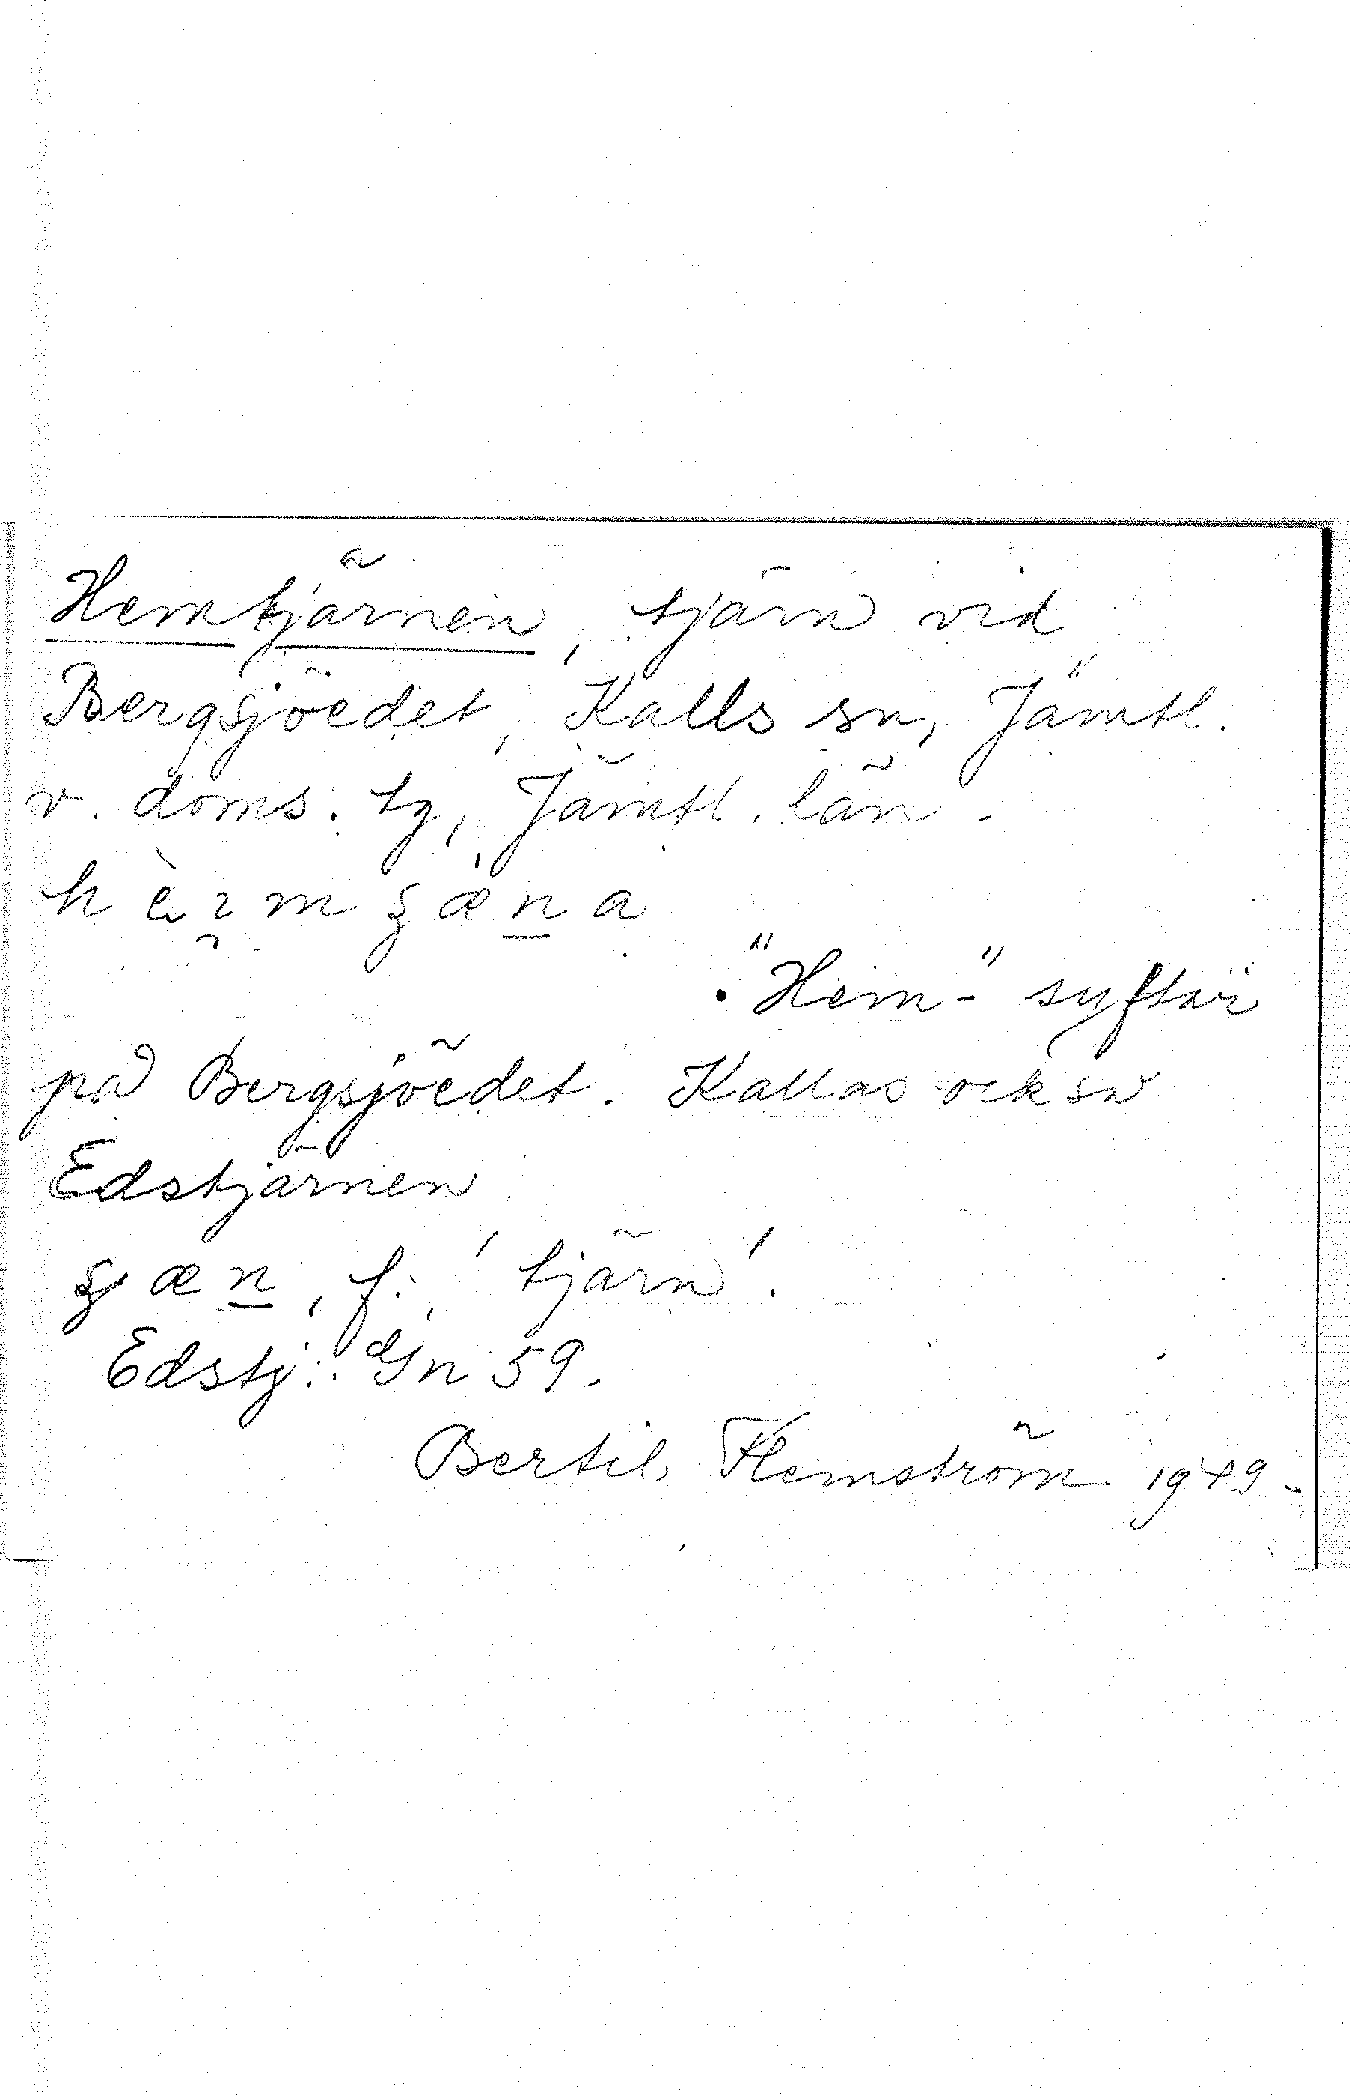 Hemtjärnen, tjärn vid
Bergsjöedet, Kalls sn, Jämtl.
v. doms. tg, Jämtl. län.
"Hem-" syftar
på Bergsjöedet. Kallas också
Edstjärnen
f., 'tjärn'.
Edstj.: Gn 59.
Bertil Flemström 1949.